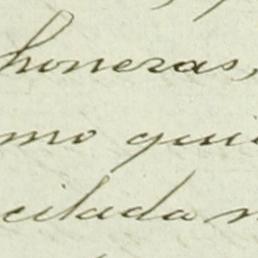 honeras,
mo qui
citada n